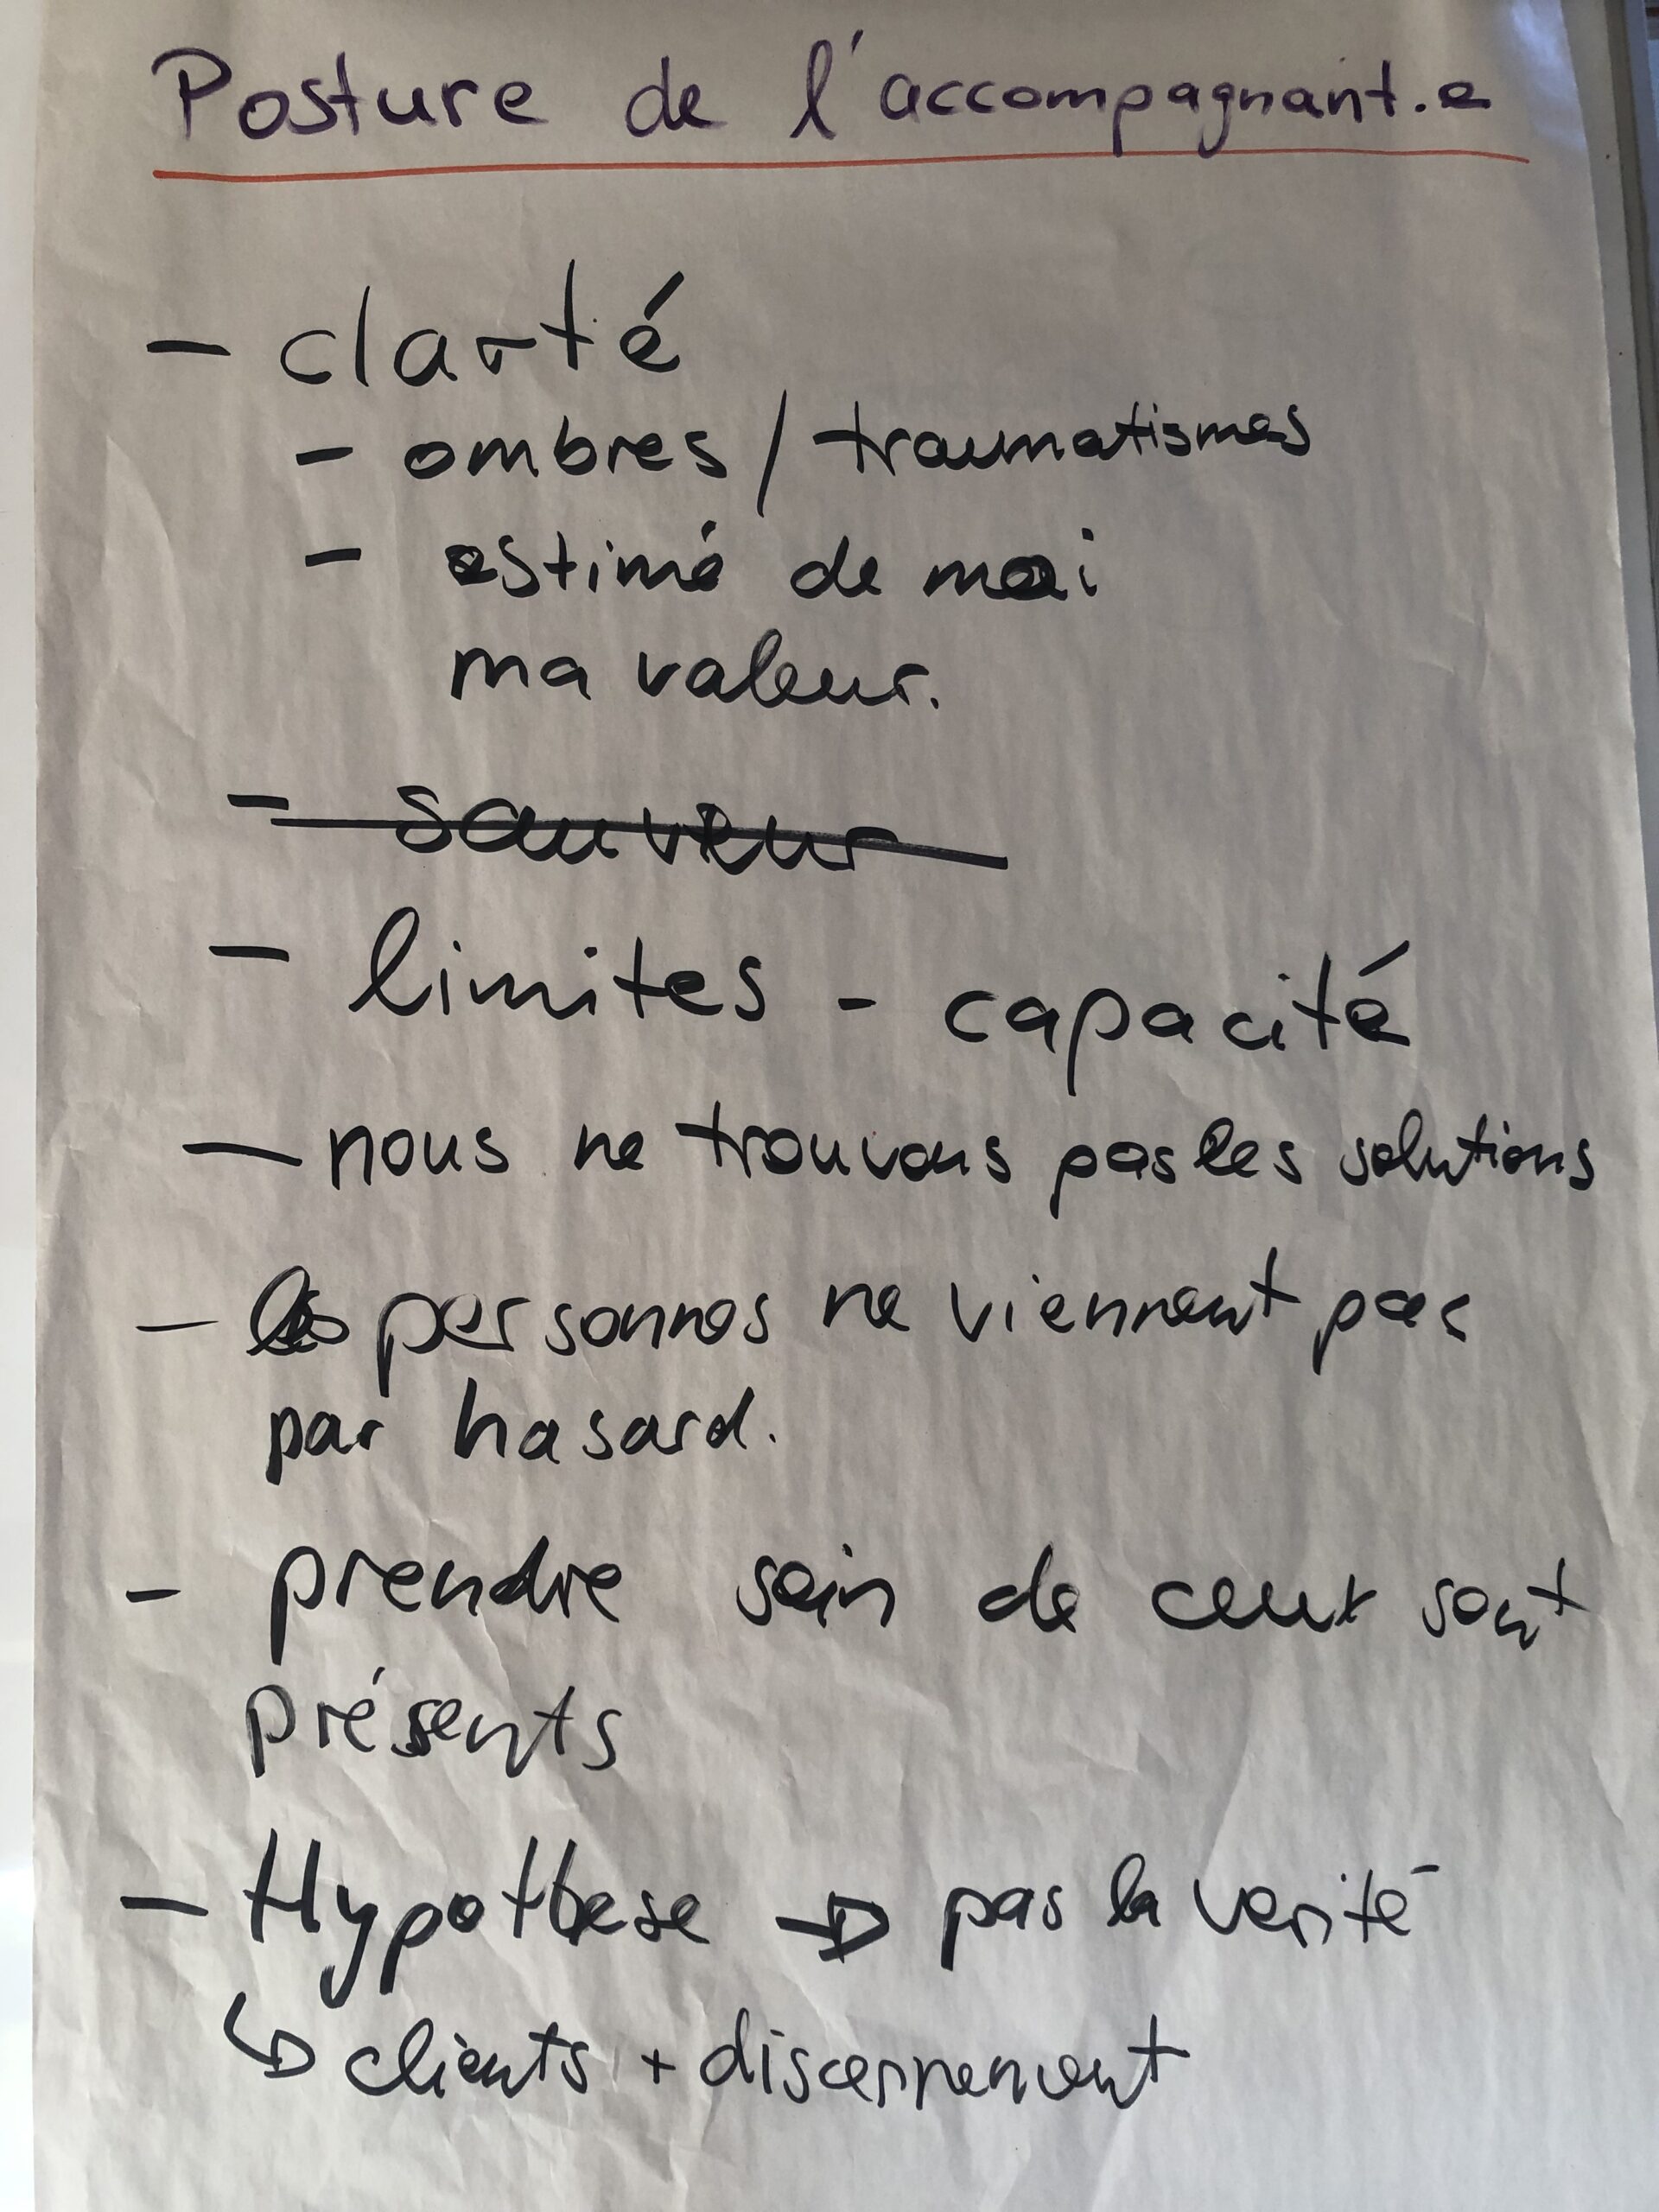 Posture de l'accompagnant.e
- clarté
- ombres / traumatismes
- estimé de moi
ma valeur.
- sauveur
- limites - capacité
- nous ne trouvons pas les solutions
- les personnes ne viennent pas
par hasard.
- prendre soin de ceux sont
présents
- Hypothese → pas la verité
↳ clients + discernement